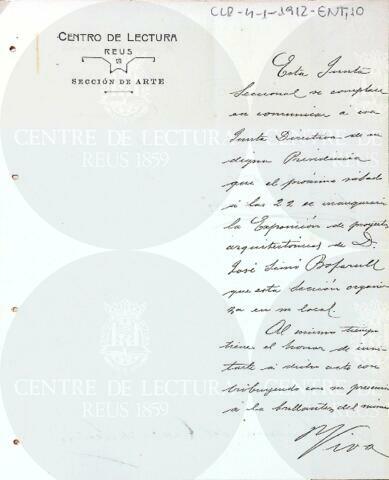 CLR-4-1-1912-ENT,10
CENTRO DE LECTURA
REUS
SECCIÓN DE ARTE
Esta Junta
Seccional se complace
en comunicar a esa
Junta Directiva de su
digna Presidencia
que el próximo sábado
á las 22 se inaugurará
la Exposición de proyectos
arquitectónicos de D.
José Simó Bofarull
que esta Sección organi
za en su local.
Al mismo tiempo
tiene el honor de invi
tarle á dicho acto con
tribuyendo con su presencia
á la brillantez del mismo
Viva
CENTRE DE LECTURA
REUS 1859
CENTRE DE LECTURA
REUS 1859